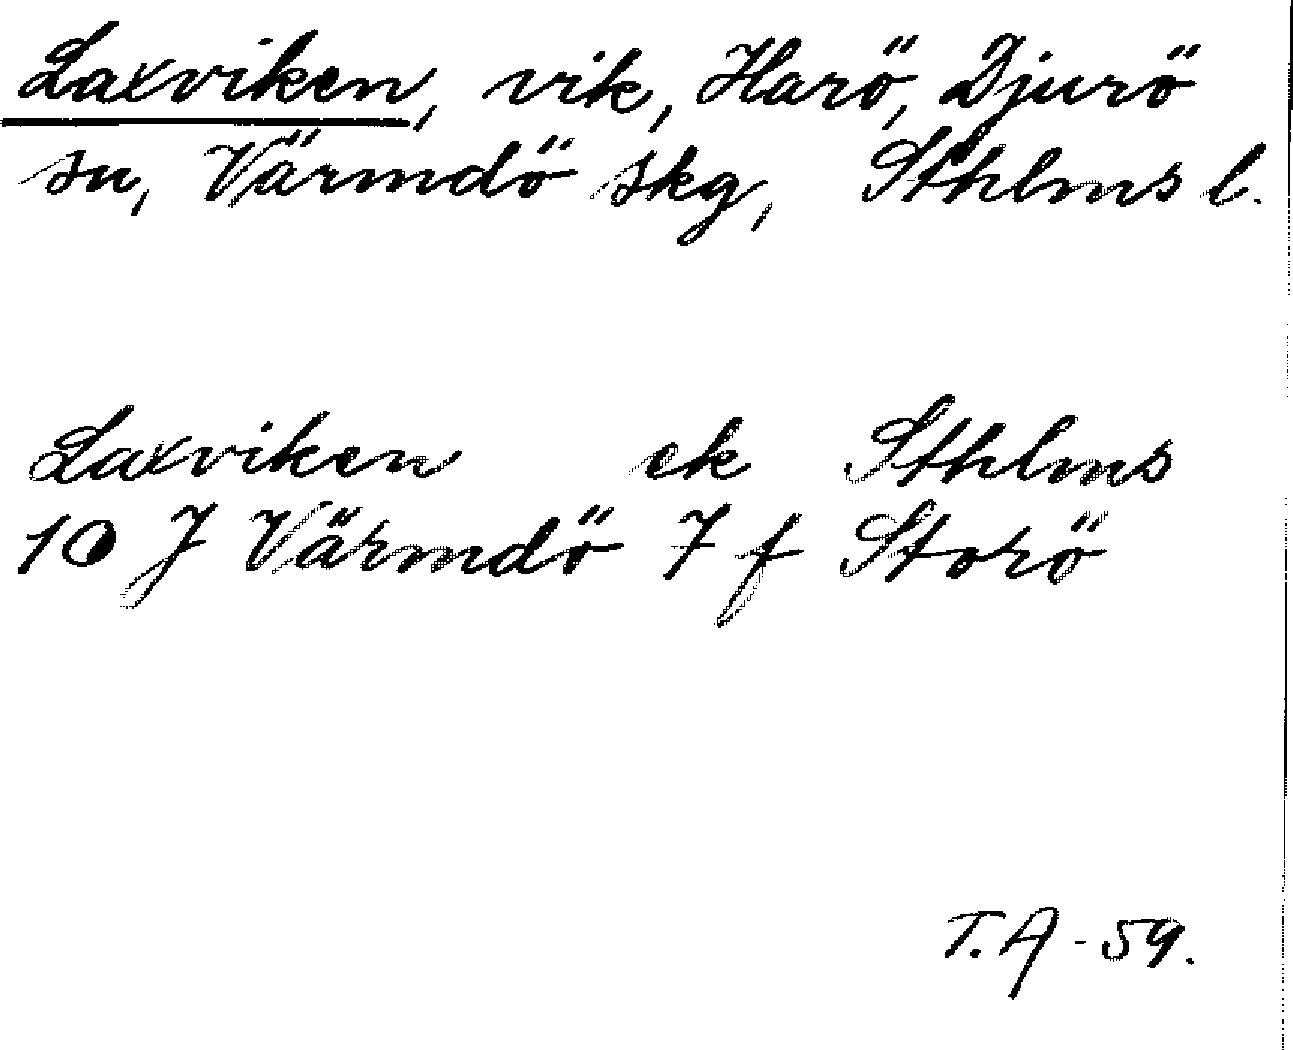 Laxviken, vik, Harö, Djurö
sn, Värmdö skg, Sthlms l.
Laxviken ek Sthlms
10 J Värmdö 7 f Storö
T.A-59.